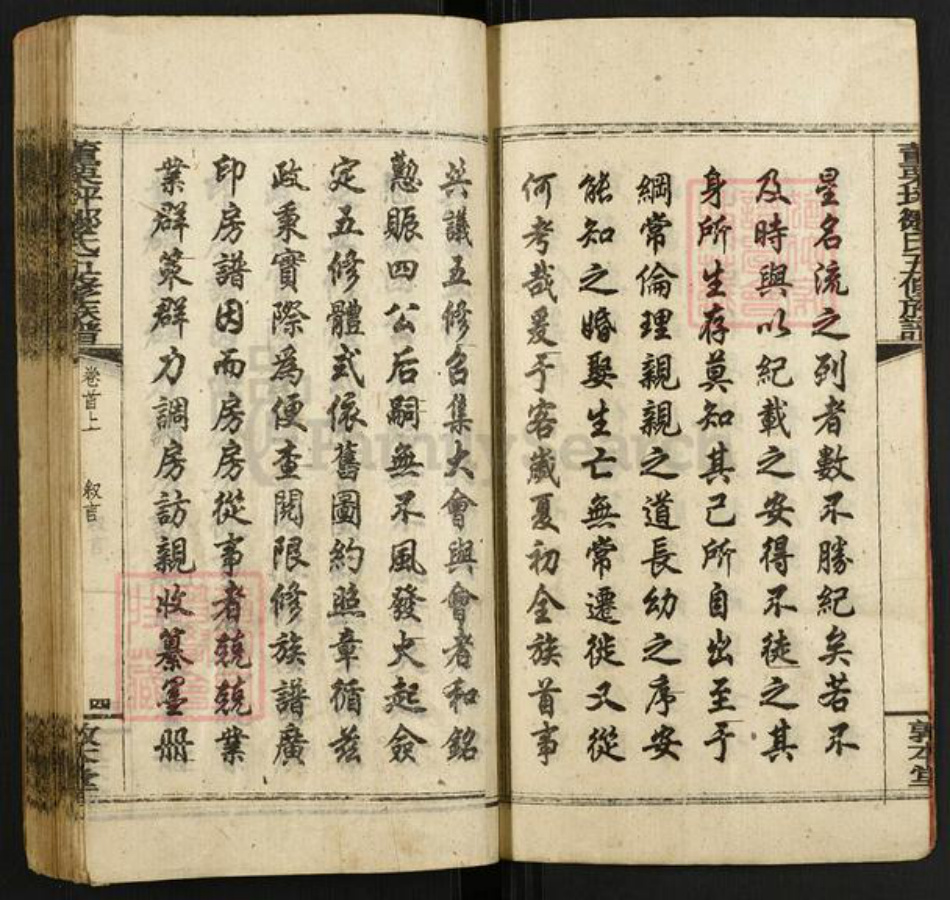 星名流之列者數不勝紀矣若不
及時與以紀載之安得不徒之其
身所生存莫知其己所自出至于
綱常倫理親親之道長幼之序安
能知之婚娶生亡無常遷徙又從
何考哉爰于客歲夏初全族首事
共議五修召集大會與會者和銘
懃賑四公后嗣無不風發火起僉
定五修體式依舊圖約照章循茲
政秉實際為便查閱限修族譜廣
印房譜因而房房從事者兢兢業
業群策群力調房訪親收纂墨冊
卷首上
叙言
四
敦本堂
FamilySearch